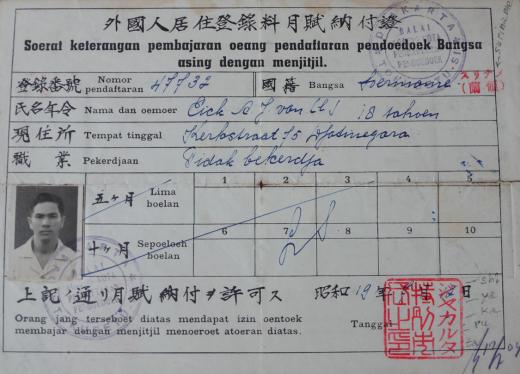 外國人居住登錄料月賦納付證
Soerat keterangan pembajaran oeang pendaftaran pendoedoek Bangsa
asing dengan menjitjil.
登錄番號 Nomor pendaftaran 47732 國籍 Bangsa
氏名年令 Nama dan oemoer Eick A J von 18 tahoen
現住所 Tempat tinggal Kerkstraat 15 Djatinegara
職業 Pekerdjaan Tidak bekerdja
五ヶ月 Lima boelan 1 2 3 4 5
十ヶ月 Sepoeloeh boelan 6 7 8 9 10
上記ノ通リ月賦納付ヲ許可ス 昭和19年
Orang jang terseboet diatas mendapat izin oentoek
membajar dengan menjitjil menoeroet atoeran diatas.
Tanggal